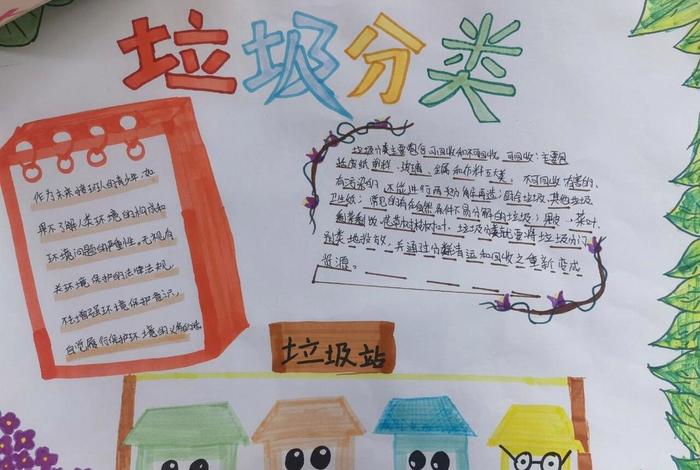 垃圾分类
作为未来接班人的青少年,如
果不了解人类环境的构成和
环境问题的严重性,无视有
关环境保护的法律法规,
不去增强环境保护意识,
自觉履行保护环境的义务的话
垃圾分类主要包含可回收和不可回收,可回收:主要包
括废纸 塑料、玻璃、金属和布料五大类、不可回收 有害的、
有污染的、不能进行再
卫生纸;常见的有自然条件不易分解的垃圾;果皮、菜叶、
剩菜剩饭、花草树枝树叶、垃圾分类就是将垃圾分门
别类地投放,并通过分类清运和回收使之重新变成
资源。
垃圾站